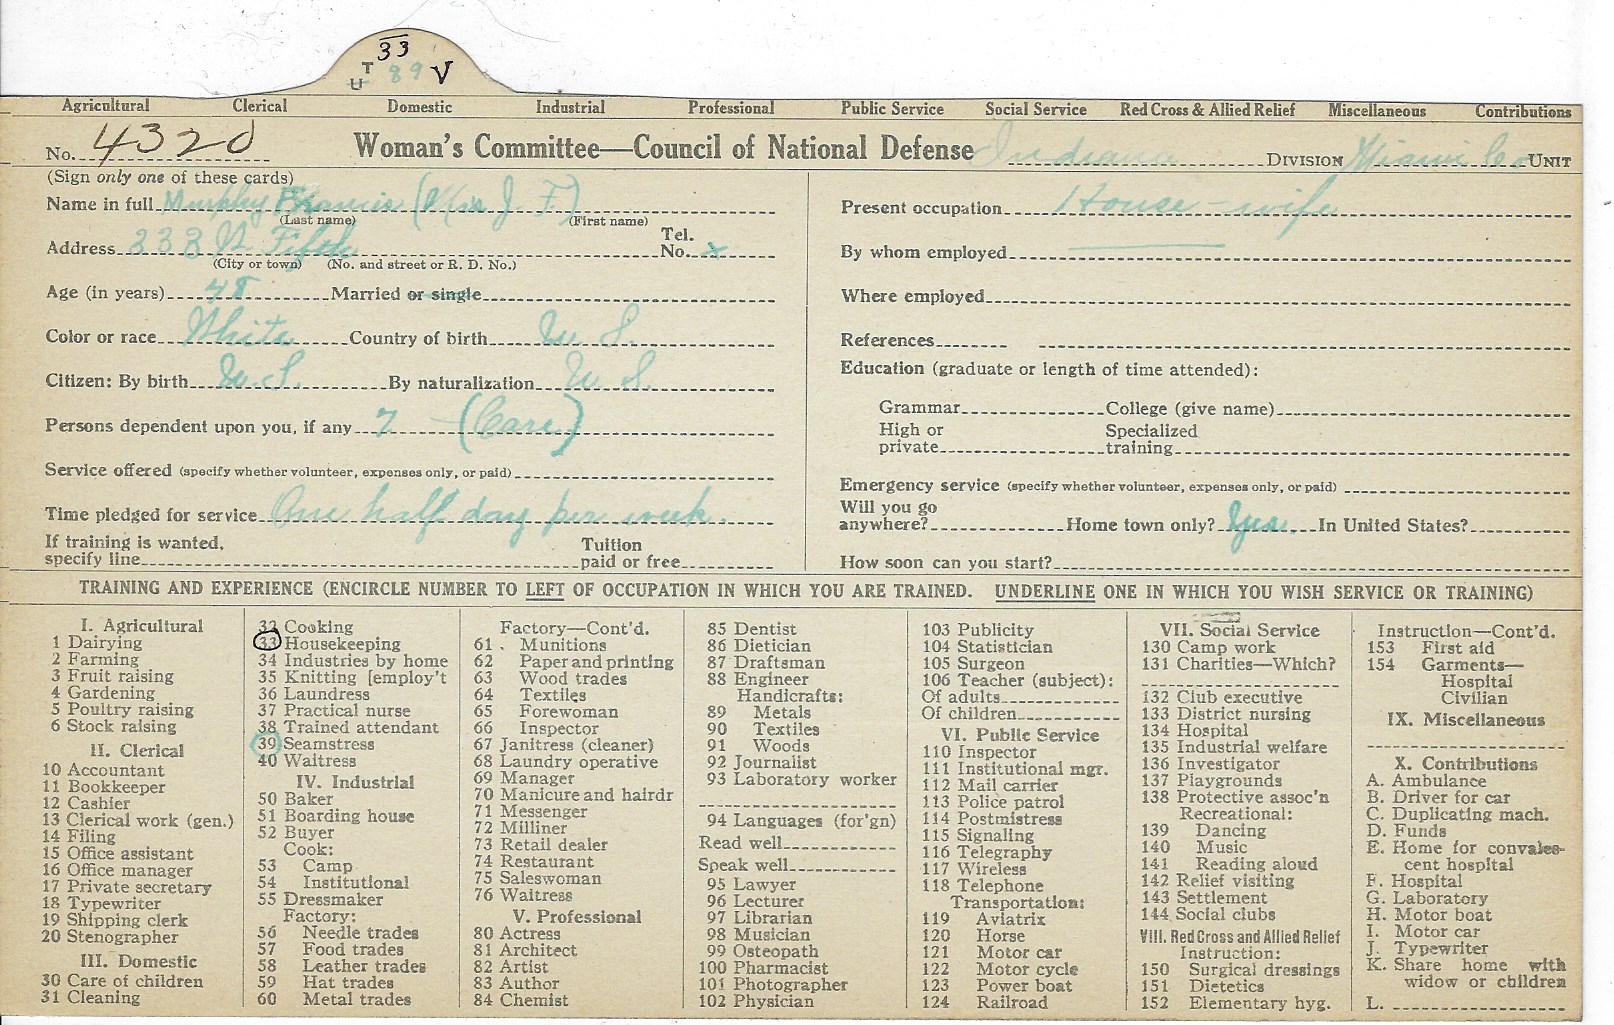 33
T 89 V
U
Agricultural Clerical Domestic Industrial Professional Public Service Social Service Red Cross & Allied Relief Miscellaneous Contributions
No. 4320 Woman's Committee—Council of National Defense Indiana DIVISION Miami Co UNIT
(Sign only one of these cards)
Name in full Murphy Francis (Mrs J. F.)
(Last name) (First name)
Address 233 W. Fifth Tel. No. x
(City or town) (No. and street or R. D. No.)
Age (in years) 48 Married or single
Color or race White Country of birth U. S.
Citizen: By birth U. S. By naturalization U. S.
Persons dependent upon you, if any 7 (Care)
Service offered (specify whether volunteer, expenses only, or paid)
Time pledged for service One half day per week.
If training is wanted, specify line Tuition paid or free
Present occupation House-wife
By whom employed
Where employed
References
Education (graduate or length of time attended):
Grammar College (give name)
High or private Specialized training
Emergency service (specify whether volunteer, expenses only, or paid)
Will you go anywhere? Home town only? Yes. In United States?
How soon can you start?
TRAINING AND EXPERIENCE (ENCIRCLE NUMBER TO LEFT OF OCCUPATION IN WHICH YOU ARE TRAINED. UNDERLINE ONE IN WHICH YOU WISH SERVICE OR TRAINING)
I. Agricultural
1 Dairying
2 Farming
3 Fruit raising
4 Gardening
5 Poultry raising
6 Stock raising
II. Clerical
10 Accountant
11 Bookkeeper
12 Cashier
13 Clerical work (gen.)
14 Filing
15 Office assistant
16 Office manager
17 Private secretary
18 Typewriter
19 Shipping clerk
20 Stenographer
III. Domestic
30 Care of children
31 Cleaning
32 Cooking
33 Housekeeping
34 Industries by home
35 Knitting [employ't
36 Laundress
37 Practical nurse
38 Trained attendant
39 Seamstress
40 Waitress
IV. Industrial
50 Baker
51 Boarding house
52 Buyer
Cook:
53 Camp
54 Institutional
55 Dressmaker
Factory:
56 Needle trades
57 Food trades
58 Leather trades
59 Hat trades
60 Metal trades
Factory—Cont'd.
61 Munitions
62 Paper and printing
63 Wood trades
64 Textiles
65 Forewoman
66 Inspector
67 Janitress (cleaner)
68 Laundry operative
69 Manager
70 Manicure and hairdr
71 Messenger
72 Milliner
73 Retail dealer
74 Restaurant
75 Saleswoman
76 Waitress
V. Professional
80 Actress
81 Architect
82 Artist
83 Author
84 Chemist
85 Dentist
86 Dietician
87 Draftsman
88 Engineer
Handicrafts:
89 Metals
90 Textiles
91 Woods
92 Journalist
93 Laboratory worker
94 Languages (for'gn)
Read well
Speak well
95 Lawyer
96 Lecturer
97 Librarian
98 Musician
99 Osteopath
100 Pharmacist
101 Photographer
102 Physician
103 Publicity
104 Statistician
105 Surgeon
106 Teacher (subject):
Of adults
Of children
VI. Public Service
110 Inspector
111 Institutional mgr.
112 Mail carrier
113 Police patrol
114 Postmistress
115 Signaling
116 Telegraphy
117 Wireless
118 Telephone
Transportation:
119 Aviatrix
120 Horse
121 Motor car
122 Motor cycle
123 Power boat
124 Railroad
VII. Social Service
130 Camp work
131 Charities—Which?
132 Club executive
133 District nursing
134 Hospital
135 Industrial welfare
136 Investigator
137 Playgrounds
138 Protective assoc'n
Recreational:
139 Dancing
140 Music
141 Reading aloud
142 Relief visiting
143 Settlement
144 Social clubs
VIII. Red Cross and Allied Relief
Instruction:
150 Surgical dressings
151 Dietetics
152 Elementary hyg.
Instruction—Cont'd.
153 First aid
154 Garments—
Hospital
Civilian
IX. Miscellaneous
X. Contributions
A. Ambulance
B. Driver for car
C. Duplicating mach.
D. Funds
E. Home for convalescent hospital
F. Hospital
G. Laboratory
H. Motor boat
I. Motor car
J. Typewriter
K. Share home with widow or children
L.